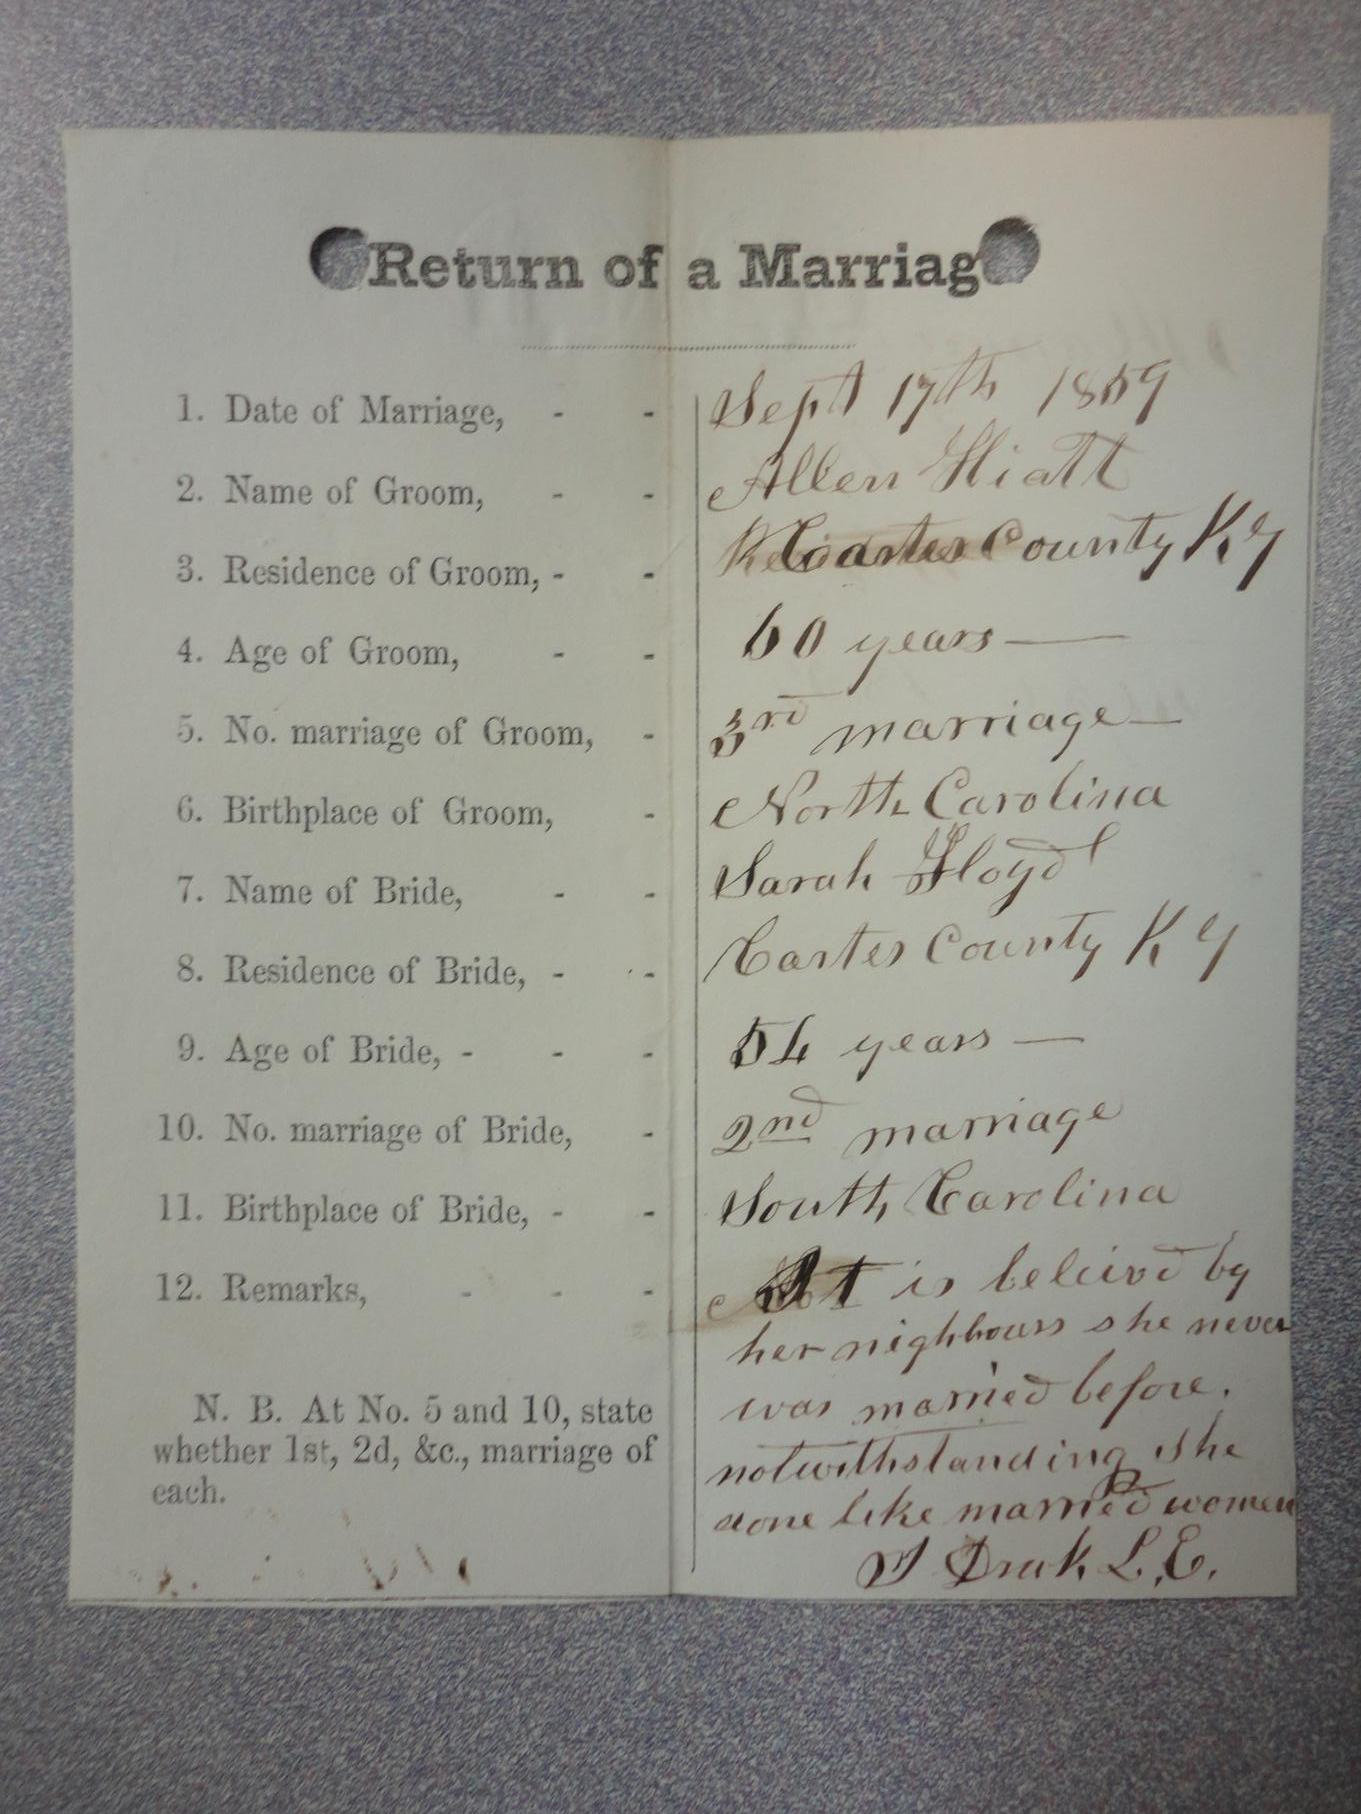 Return of a Marriag
1. Date of Marriage, - - Sept 17th 1859
2. Name of Groom, - - Allen Hiatt
3. Residence of Groom, - - Carter County Ky
4. Age of Groom, - - 60 years —
5. No. marriage of Groom, - 3rd marriage —
6. Birthplace of Groom, - North Carolina
7. Name of Bride, - - Sarah Floyd
8. Residence of Bride, - - Carter County Ky
9. Age of Bride, - - - 54 years —
10. No. marriage of Bride, - 2nd marriage
11. Birthplace of Bride, - - South Carolina
12. Remarks, - - - It is beleived by
her nighbours she never
was married before.
notwithstanding she
done like married women
Drak
N. B. At No. 5 and 10, state
whether 1st, 2d, &c., marriage of
each.